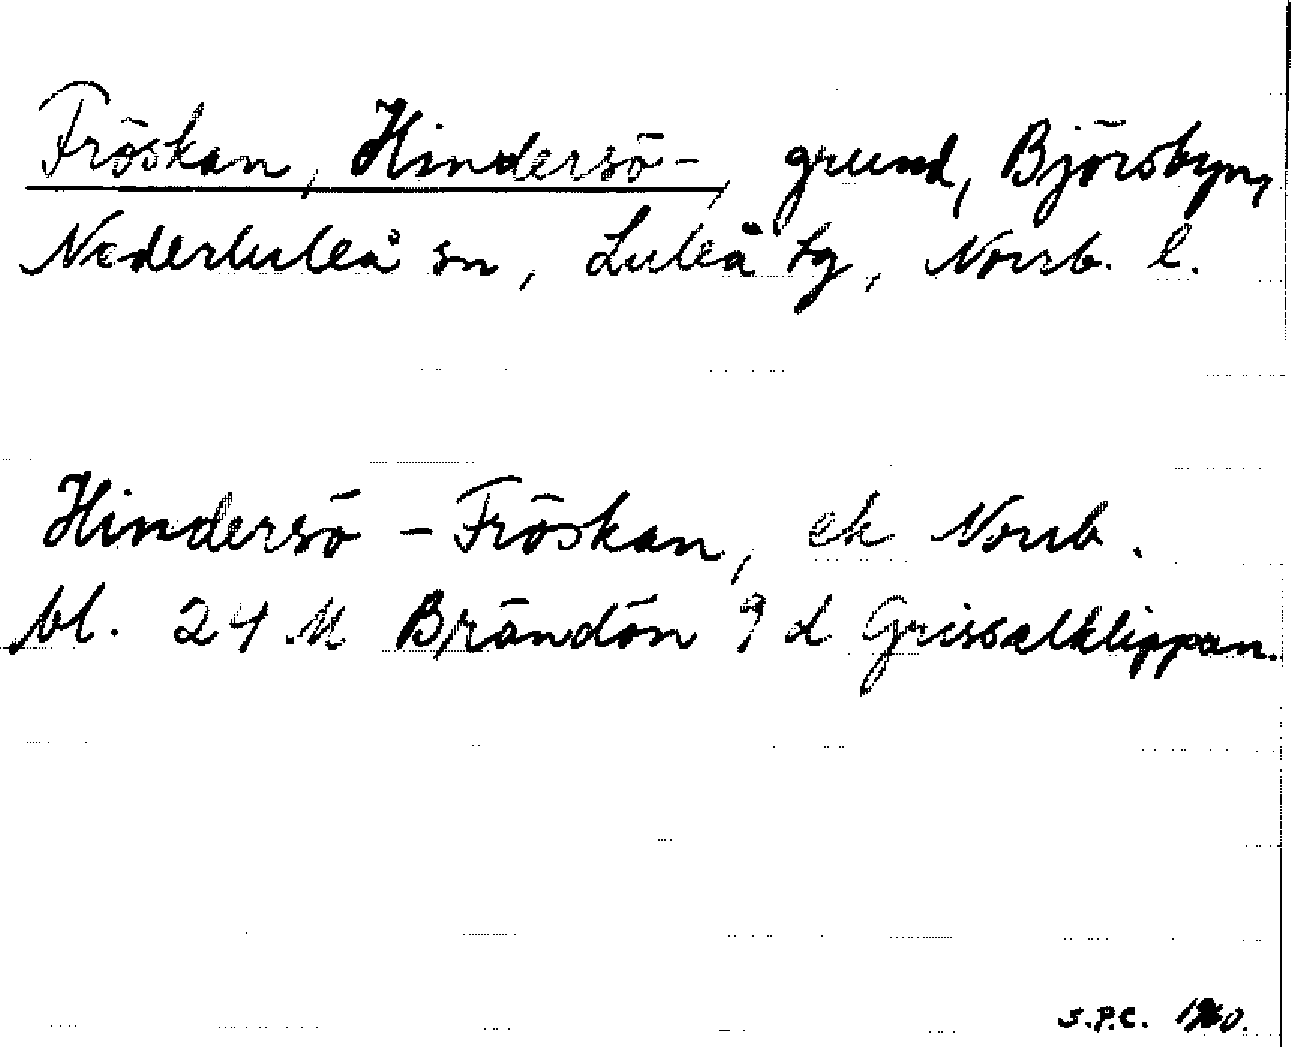 Fröskan, Hindersö-, grund, Björsbyn,
Nederluleå sn, Luleå tg, Norrb. l.
Hindersö-Fröskan, ek Norrb.
bl. 24 M Brändön 9 d Grisselklippan.
S.P.C.